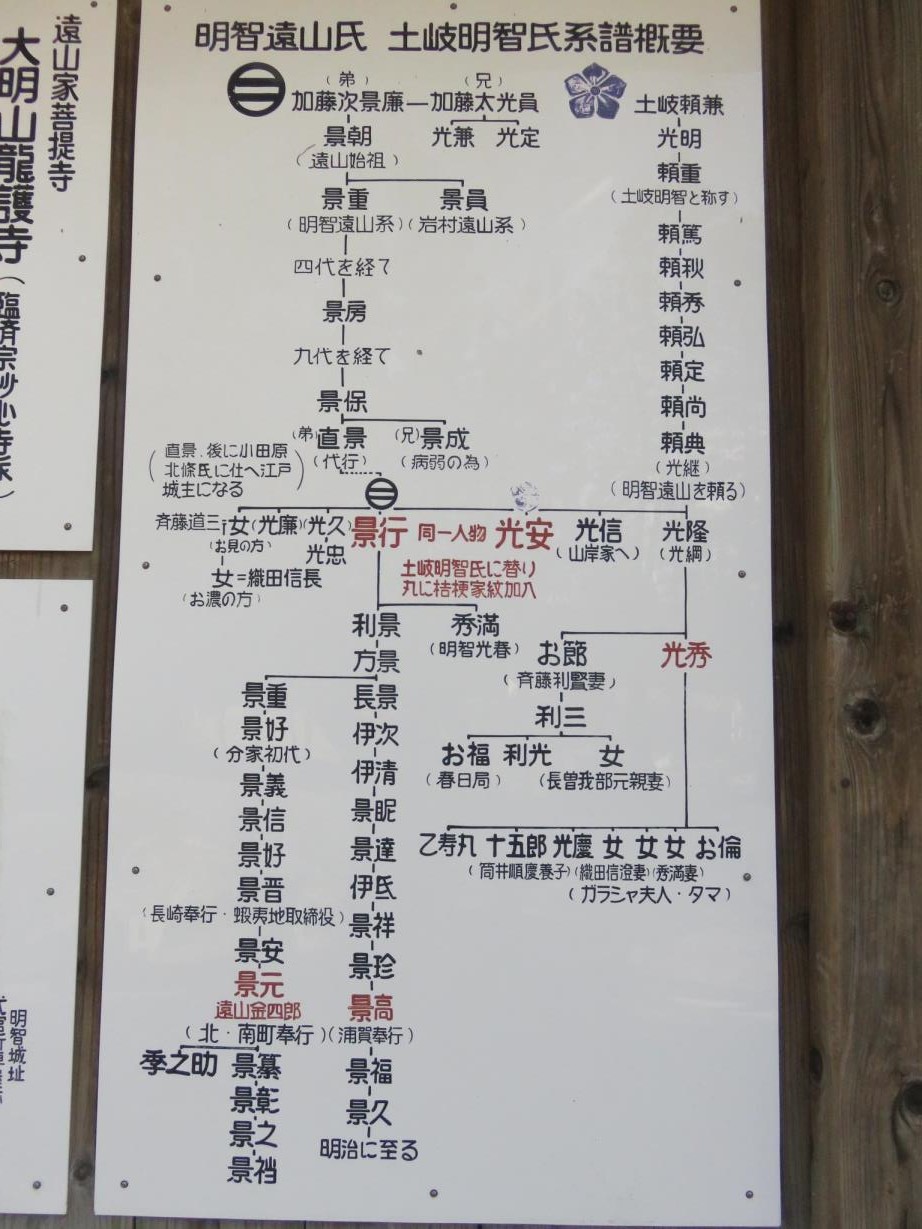 遠山家菩提寺
大明山龍護寺
(臨済宗妙心寺派)
明智城址
明智遠山氏 土岐明智氏系譜概要
(弟) (兄)
加藤次景廉 加藤太光員 土岐頼兼
景朝 光兼 光定 光明
(遠山始祖) 頼重
(土岐明智と称す)
景重 景員
(明智遠山系) (岩村遠山系)
頼篤
四代を経て 頼秋
景房 頼秀
頼弘
九代を経て 頼定
景保 頼尚
(弟)直景 (兄)景成 頼典
(代行) (病弱の為) (光継)
(明智遠山を頼る)
(直景.後に小田原
北條氏に仕へ江戸
城主になる)
斉藤道三 女 (光廉) (光久) 景行 同一人物 光安 光信 光隆
(お見の方) 光忠 (山岸家へ) (光綱)
女=織田信長
(お濃の方)
土岐明智氏に替り
丸に桔梗家紋加入
利景 秀満
(明智光春)
方景 お節 光秀
(斉藤利賢妻)
景重 長景
利三
景好 伊次
(分家初代)
お福 利光 女
(春日局) (長曽我部元親妻)
景義 伊清
景信 景昵
景好 景達
乙寿丸 十五郎 光慶 女 女 女 お倫
(筒井順慶養子) (織田信澄妻) (秀満妻)
(ガラシャ夫人・タマ)
景晋 伊氐
(長崎奉行・蝦夷地取締役) 景祥
景安 景珍
景元 景高
遠山金四郎
(北・南町奉行) (浦賀奉行)
季之助 景纂 景福
景彰 景久
景之 明治に至る
景裆